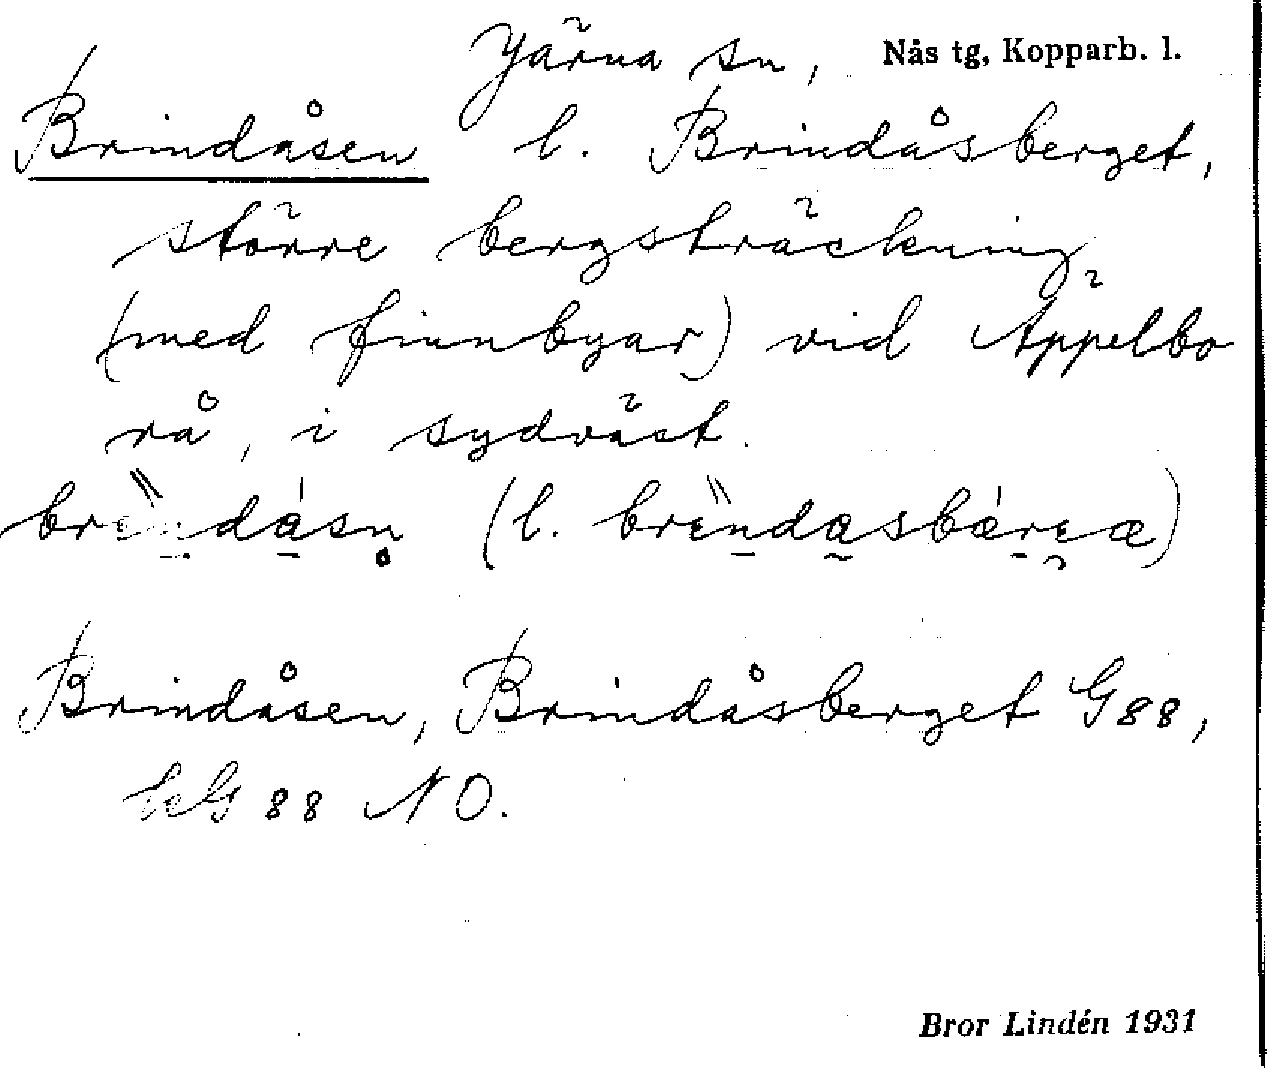 Järna sn, Nås tg, Kopparb. l.
Brindåsen l. Brindåsberget,
större bergsträckning
(med finnbyar) vid Äppelbo
rå, i sydväst.
(l.
Brindåsen, Brindåsberget G88,
88 NO.
Bror Lindén 1931